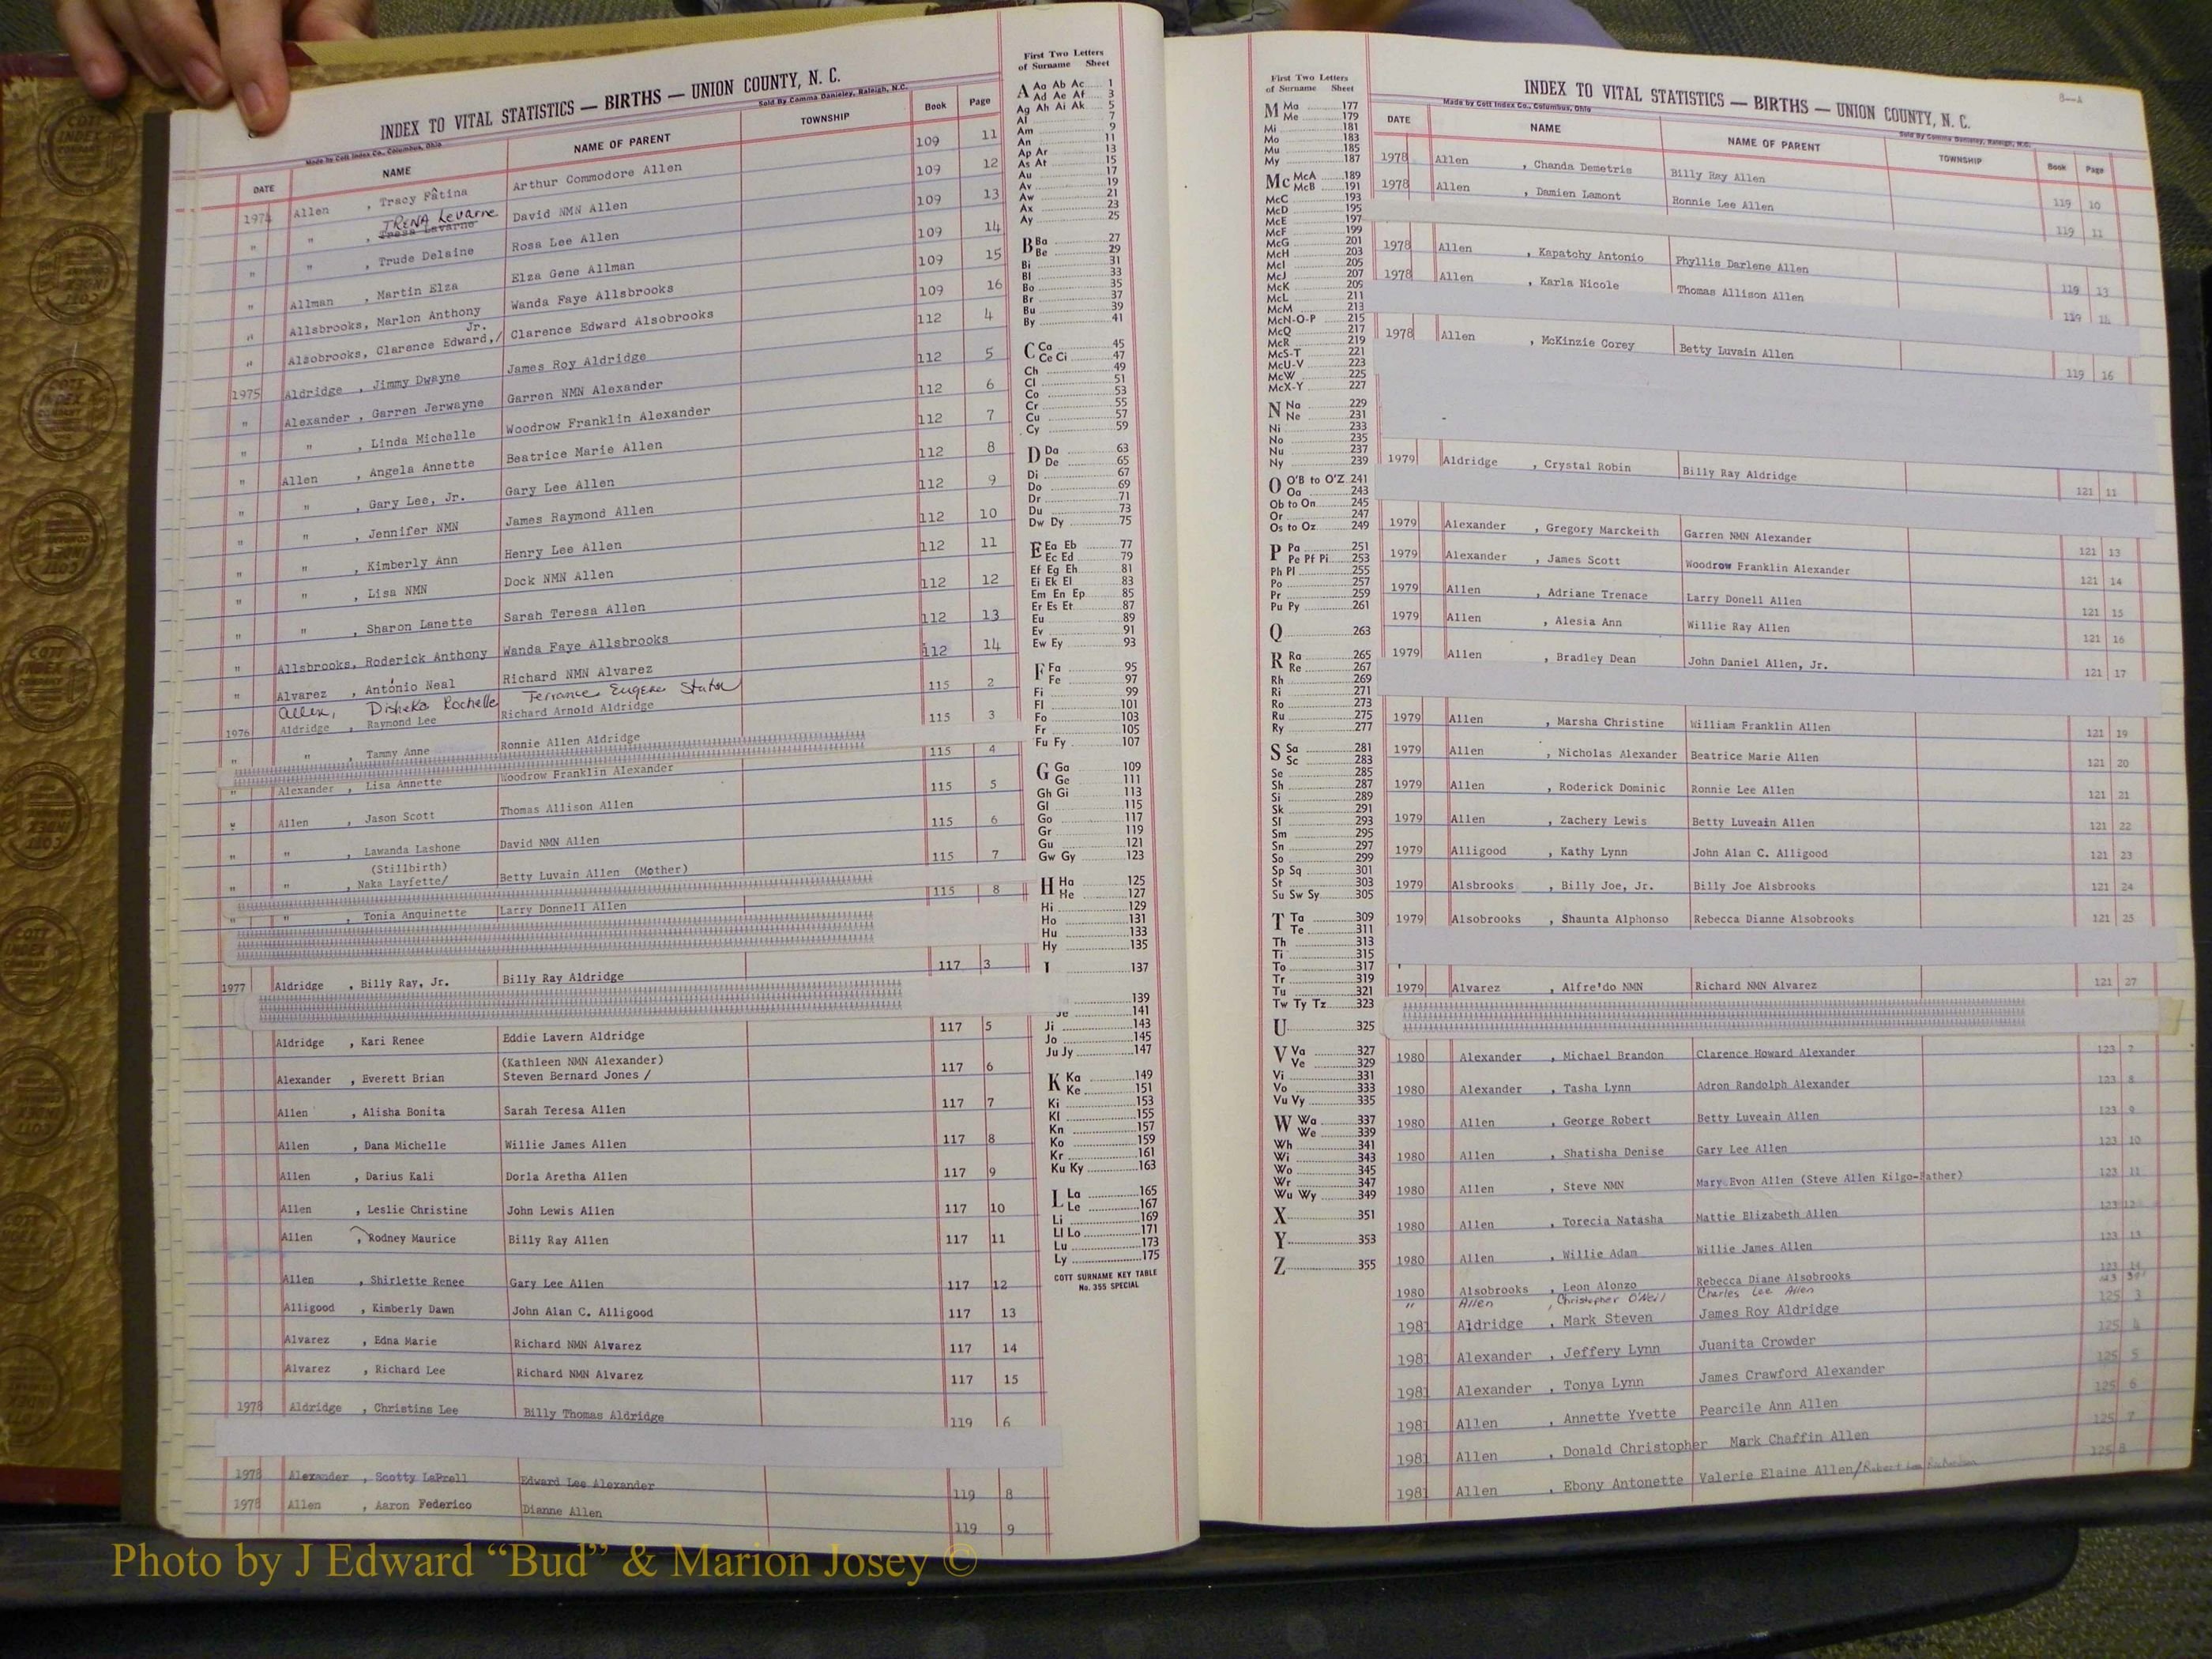 INDEX TO VITAL STATISTICS — BIRTHS — UNION COUNTY, N. C.
Made by Cott Index Co., Columbus, Ohio Sold By Comma Danieley, Raleigh, N.C.
DATE NAME NAME OF PARENT TOWNSHIP Book Page
1974 Allen , Tracy Fatina Arthur Commodore Allen 109 11
" " , TRENA Levarne David NMN Allen 109 12
" " , Trude Delaine Rosa Lee Allen 109 13
" Allman , Martin Elza Elza Gene Allman 109 14
" Allsbrooks, Marlon Anthony Wanda Faye Allsbrooks 109 15
" Alsobrooks, Clarence Edward,/ Jr. Clarence Edward Alsobrooks 109 16
1975 Aldridge , Jimmy Dwayne James Roy Aldridge 112 4
" Alexander , Garren Jerwayne Garren NMN Alexander 112 5
" " , Linda Michelle Woodrow Franklin Alexander 112 6
" Allen , Angela Annette Beatrice Marie Allen 112 7
" " , Gary Lee, Jr. Gary Lee Allen 112 8
" " , Jennifer NMN James Raymond Allen 112 9
" " , Kimberly Ann Henry Lee Allen 112 10
" " , Lisa NMN Dock NMN Allen 112 11
" " , Sharon Lanette Sarah Teresa Allen 112 12
" Allsbrooks, Roderick Anthony Wanda Faye Allsbrooks 112 13
" Alvarez , Antonio Neal Richard NMN Alvarez 112 14
Allen, Disheka Rochelle Terrance Eugene
1976 Aldridge , Raymond Lee Richard Arnold Aldridge 115 2
" " , Tammy Anne Ronnie Allen Aldridge 115 3
" Alexander , Lisa Annette Woodrow Franklin Alexander 115 4
" Allen , Jason Scott Thomas Allison Allen 115 5
" " , Lawanda Lashone David NMN Allen 115 6
(Stillbirth)
" " , Naka Layfette/ Betty Luvain Allen (Mother) 115 7
" " , Tonia Anquinette Larry Donnell Allen 115 8
1977 Aldridge , Billy Ray, Jr. Billy Ray Aldridge 117 3
Aldridge , Kari Renee Eddie Lavern Aldridge 117 5
(Kathleen NMN Alexander)
Alexander , Everett Brian Steven Bernard Jones / 117 6
Allen , Alisha Bonita Sarah Teresa Allen 117 7
Allen , Dana Michelle Willie James Allen 117 8
Allen , Darius Kali Doria Aretha Allen 117 9
Allen , Leslie Christine John Lewis Allen 117 10
Allen , Rodney Maurice Billy Ray Allen 117 11
Allen , Shirlette Renee Gary Lee Allen 117 12
Alligood , Kimberly Dawn John Alan C. Alligood 117 13
Alvarez , Edna Marie Richard NMN Alvarez 117 14
Alvarez , Richard Lee Richard NMN Alvarez 117 15
1978 Aldridge , Christina Lee Billy Thomas Aldridge 119 6
1978 Alexander , Scotty LaPrell Edward Lee Alexander 119 8
1978 Allen , Aaron Federico Dianne Allen 119 9
First Two Letters
of Surname Sheet
A Aa Ab Ac 1
Ad Ae Af 3
Ag Ah Ai Ak 5
Al 7
Am 9
An 11
Ap Ar 13
As At 15
Au 17
Av 19
Aw 21
Ax 23
Ay 25
B Ba 27
Be 29
Bi 31
Bl 33
Bo 35
Br 37
Bu 39
By 41
C Ca 45
Ce Ci 47
Ch 49
Cl 51
Co 53
Cr 55
Cu 57
Cy 59
D Da 63
De 65
Di 67
Do 69
Dr 71
Du 73
Dw Dy 75
E Ea Eb 77
Ec Ed 79
Ef Eg Eh 81
Ei Ek El 83
Em En Ep 85
Er Es Et 87
Eu 89
Ev 91
Ew Ey 93
F Fa 95
Fe 97
Fi 99
Fl 101
Fo 103
Fr 105
Fu Fy 107
G Ga 109
Ge 111
Gh Gi 113
Gl 115
Go 117
Gr 119
Gu 121
Gw Gy 123
H Ha 125
He 127
Hi 129
Ho 131
Hu 133
Hy 135
I 137
139
Je 141
Ji 143
Jo 145
Ju Jy 147
K Ka 149
Ke 151
Ki 153
Kl 155
Kn 157
Ko 159
Kr 161
Ku Ky 163
L La 165
Le 167
Li 169
Ll Lo 171
Lu 173
Ly 175
COTT SURNAME KEY TABLE
No. 355 SPECIAL
First Two Letters
of Surname Sheet
M Ma 177
Me 179
Mi 181
Mo 183
Mu 185
My 187
Mc McA 189
McB 191
McC 193
McD 195
McE 197
McF 199
McG 201
McH 203
McI 205
McJ 207
McK 209
McL 211
McM 213
McN-O-P 215
McQ 217
McR 219
McS-T 221
McU-V 223
McW 225
McX-Y 227
N Na 229
Ne 231
Ni 233
No 235
Nu 237
Ny 239
O O'B to O'Z 241
Oa 243
Ob to On 245
Or 247
Os to Oz 249
P Pa 251
Pe Pf Pi 253
Ph Pl 255
Po 257
Pr 259
Pu Py 261
Q 263
R Ra 265
Re 267
Rh 269
Ri 271
Ro 273
Ru 275
Ry 277
S Sa 281
Sc 283
Se 285
Sh 287
Si 289
Sk 291
Sl 293
Sm 295
Sn 297
So 299
Sp Sq 301
St 303
Su Sw Sy 305
T Ta 309
Te 311
Th 313
Ti 315
To 317
Tr 319
Tu 321
Tw Ty Tz 323
U 325
V Va 327
Ve 329
Vi 331
Vo 333
Vu Vy 335
W Wa 337
We 339
Wh 341
Wi 343
Wo 345
Wr 347
Wu Wy 349
X 351
Y 353
Z 355
INDEX TO VITAL STATISTICS — BIRTHS — UNION COUNTY, N. C.
Made by Cott Index Co., Columbus, Ohio Sold By Comma Danieley, Raleigh, N.C.
DATE NAME NAME OF PARENT TOWNSHIP Book Page
1978 Allen , Chanda Demetris Billy Ray Allen 119 10
1978 Allen , Damien Lamont Ronnie Lee Allen 119 11
1978 Allen , Kapatchy Antonio Phyllis Darlene Allen 119 13
1978 Allen , Karla Nicole Thomas Allison Allen 119 14
1978 Allen , McKinzie Corey Betty Luvain Allen 119 16
1979 Aldridge , Crystal Robin Billy Ray Aldridge 121 11
1979 Alexander , Gregory Marckeith Garren NMN Alexander 121 13
1979 Alexander , James Scott Woodrow Franklin Alexander 121 14
1979 Allen , Adriane Trenace Larry Donell Allen 121 15
1979 Allen , Alesia Ann Willie Ray Allen 121 16
1979 Allen , Bradley Dean John Daniel Allen, Jr. 121 17
1979 Allen , Marsha Christine William Franklin Allen 121 19
1979 Allen , Nicholas Alexander Beatrice Marie Allen 121 20
1979 Allen , Roderick Dominic Ronnie Lee Allen 121 21
1979 Allen , Zachery Lewis Betty Luveain Allen 121 22
1979 Alligood , Kathy Lynn John Alan C. Alligood 121 23
1979 Alsbrooks , Billy Joe, Jr. Billy Joe Alsbrooks 121 24
1979 Alsobrooks , Shaunta Alphonso Rebecca Dianne Alsobrooks 121 25
1979 Alvarez , Alfre'do NMN Richard NMN Alvarez 121 27
1980 Alexander , Michael Brandon Clarence Howard Alexander 123 7
1980 Alexander , Tasha Lynn Adron Randolph Alexander 123 8
1980 Allen , George Robert Betty Luveain Allen 123 9
1980 Allen , Shatisha Denise Gary Lee Allen 123 10
1980 Allen , Steve NMN Mary Evon Allen (Steve Allen Kilgo-Father) 123 11
1980 Allen , Torecia Natasha Mattie Elizabeth Allen 123 12
1980 Allen , Willie Adam Willie James Allen 123 13
1980 Alsobrooks , Leon Alonzo Rebecca Diane Alsobrooks 123 14
" Allen , Christopher O'Neil Charles Lee Allen
1981 Aldridge , Mark Steven James Roy Aldridge 125 3
1981 Alexander , Jeffery Lynn Juanita Crowder 125 4
1981 Alexander , Tonya Lynn James Crawford Alexander 125 5
1981 Allen , Annette Yvette Pearcile Ann Allen 125 6
1981 Allen , Donald Christopher Mark Chaffin Allen 125 7
1981 Allen , Ebony Antonette Valerie Elaine Allen/ 125 8
Photo by J Edward “Bud” & Marion Josey ©